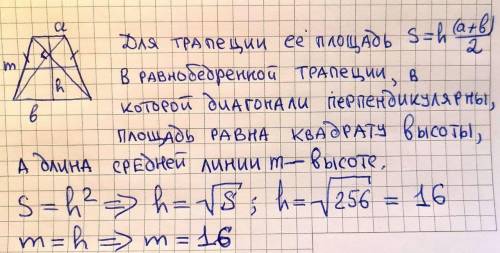 a
m
h
b
Для трапеции её площадь S=h(a+b)/2
В равнобедренной трапеции, в
которой диагонали перпендикулярны,
площадь равна квадрату высоты,
а длина средней линии m — высоте.
S = h² => h = √S; h = √256 = 16
m = h => m = 16